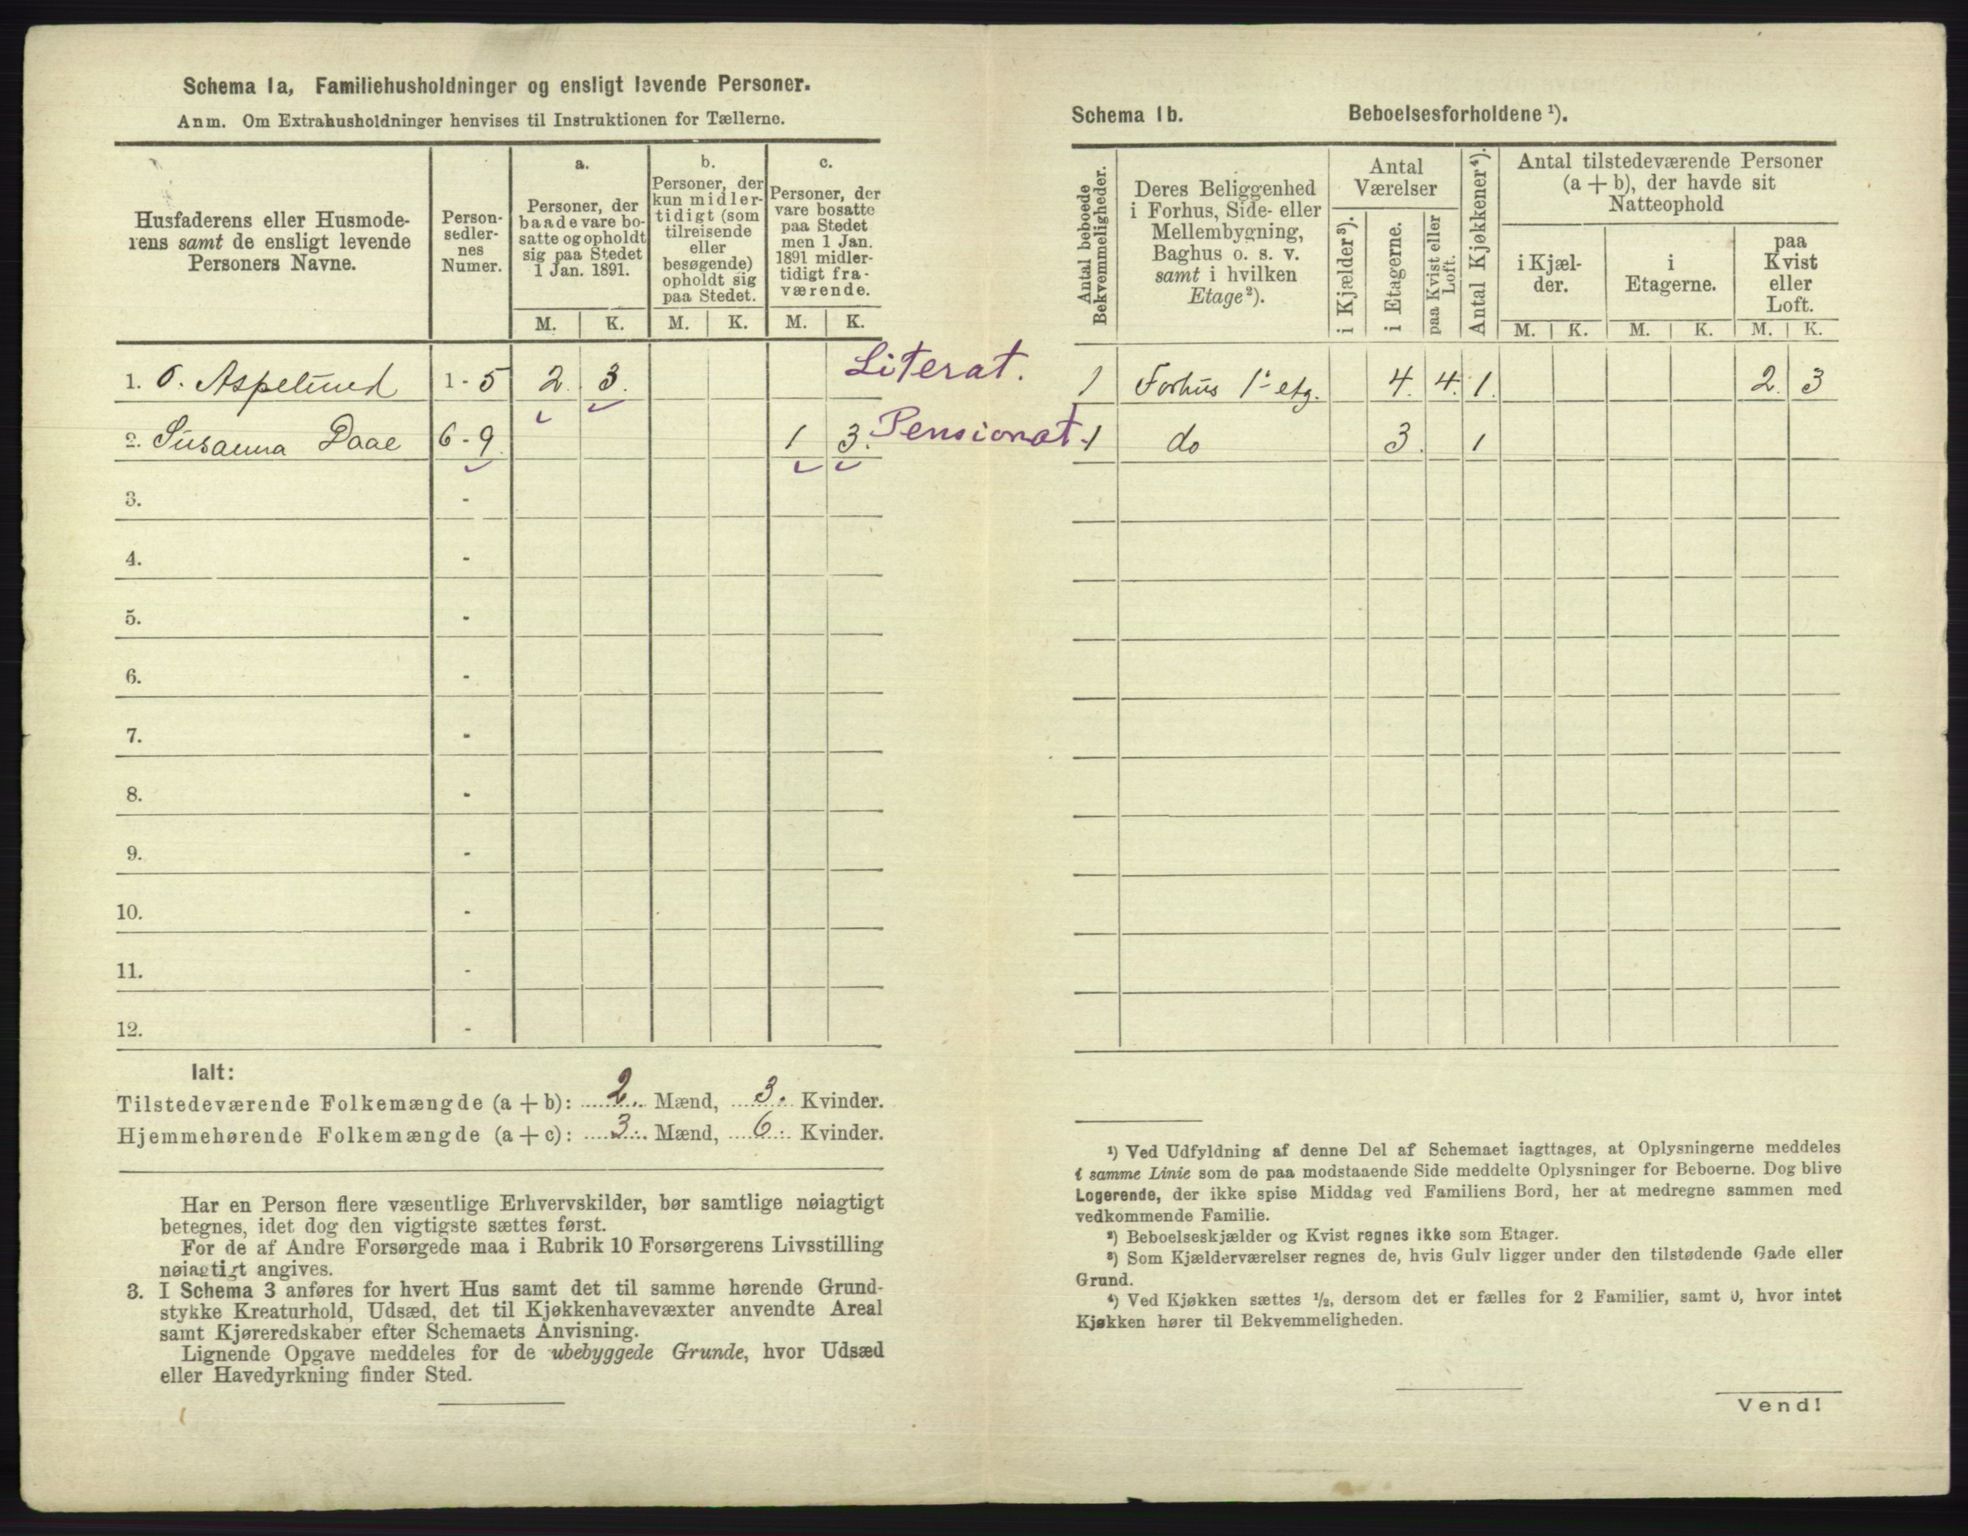 Schema 1a, Familiehusholdninger og ensligt levende Personer.
Anm. Om Extrahusholdninger henvises til Instruktionen for Tællerne.
Husfaderens eller Husmoderens samt de ensligt levende Personers Navne.
Personsedlernes Numer.
a.
Personer, der baade vare bosatte og opholdt sig paa Stedet 1 Jan. 1891.
b.
Personer, der kun midlertidigt (som tilreisende eller besøgende) opholdt sig paa Stedet.
c.
Personer, der vare bosatte paa Stedet men 1 Jan. 1891 midlertidigt fraværende.
M. K. M. K. M. K.
1. O. Aspelund 1-5 2. 3. Literat.
2. Susanna Daae 6-9. 1 3. Pensionat.
3. -
4. -
5. -
6. -
7. -
8. -
9. -
10. -
11. -
12. -
Ialt:
Tilstedeværende Folkemængde (a + b): 2. Mænd, 3. Kvinder.
Hjemmehørende Folkemængde (a + c): 3. Mænd, 6. Kvinder.
Har en Person flere væsentlige Erhvervskilder, bør samtlige nøiagtigt
betegnes, idet dog den vigtigste sættes først.
For de af Andre Forsørgede maa i Rubrik 10 Forsørgerens Livsstilling
nøiagtigt angives.
3. I Schema 3 anføres for hvert Hus samt det til samme hørende Grund-
stykke Kreaturhold, Udsæd, det til Kjøkkenhavevæxter anvendte Areal
samt Kjøreredskaber efter Schemaets Anvisning.
Lignende Opgave meddeles for de ubebyggede Grunde, hvor Udsæd
eller Havedyrkning finder Sted.
Schema 1b. Beboelsesforholdene ¹).
Antal beboede Bekvemmeligheder.
Deres Beliggenhed i Forhus, Side- eller Mellembygning, Baghus o. s. v. samt i hvilken Etage ²).
Antal Værelser
i Kjælder ³).
i Etagerne.
paa Kvist eller Loft.
Antal Kjøkkener ⁴).
Antal tilstedeværende Personer (a + b), der havde sit Natteophold
i Kjælder.
i Etagerne.
paa Kvist eller Loft.
M. K. M. K. M. K.
1 Forhus 1ˢ etg. 4. 4. 1. 2. 3
1 do 3. 1
¹) Ved Udfyldning af denne Del af Schemaet iagttages, at Oplysningerne meddeles
i samme Linie som de paa modstaaende Side meddelte Oplysninger for Beboerne. Dog blive
Logerende, der ikke spise Middag ved Familiens Bord, her at medregne sammen med
vedkommende Familie.
²) Beboelseskjælder og Kvist regnes ikke som Etager.
³) Som Kjælderværelser regnes de, hvis Gulv ligger under den tilstødende Gade eller
Grund.
⁴) Ved Kjøkken sættes ½, dersom det er fælles for 2 Familier, samt 0, hvor intet
Kjøkken hører til Bekvemmeligheden.
Vend!